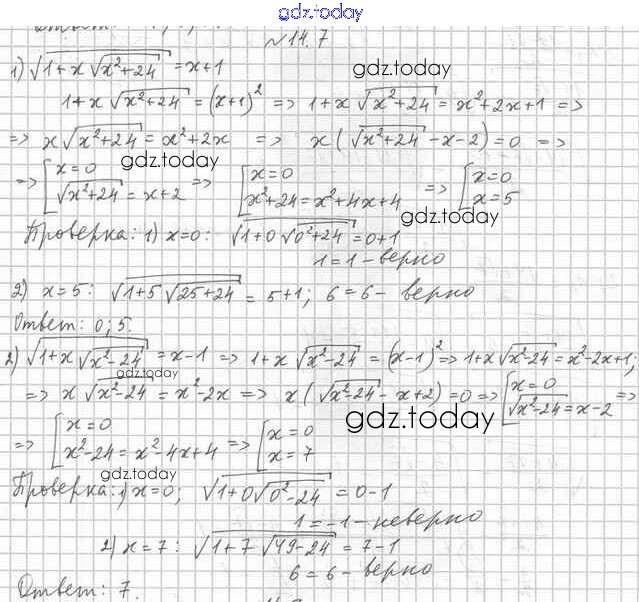 gdz.today
№14.7
1) √(1+x√(x²+24)) = x+1
gdz.today
1+x√(x²+24) = (x+1)² => 1+x√(x²+24) = x²+2x+1 =>
=> x√(x²+24) = x²+2x => x(√(x²+24) -x-2)=0 =>
gdz.today
=> [x=0 √(x²+24) = x+2 => [x=0 x²+24=x²+4x+4 => [x=0 x=5
gdz.today
Проверка: 1) x=0: √(1+0√(0²+24)) = 0+1
1=1 - верно
2) x=5: √(1+5√(25+24)) = 5+1; 6=6 - верно
Ответ: 0; 5.
2) √(1+x√(x²-24)) = x-1 => 1+x√(x²-24) = (x-1)² => 1+x√(x²-24) = x²-2x+1;
gdz.today
=> x√(x²-24) = x²-2x => x(√(x²-24) - x+2)=0 => [x=0 √(x²-24) = x-2 =>
gdz.today
=> [x=0 x²-24=x²-4x+4 => [x=0 x=7
gdz.today
Проверка: 1) x=0; √(1+0√(0²-24)) = 0-1
1=-1 - неверно
2) x=7: √(1+7√(49-24)) = 7-1
6=6 - верно
Ответ: 7.